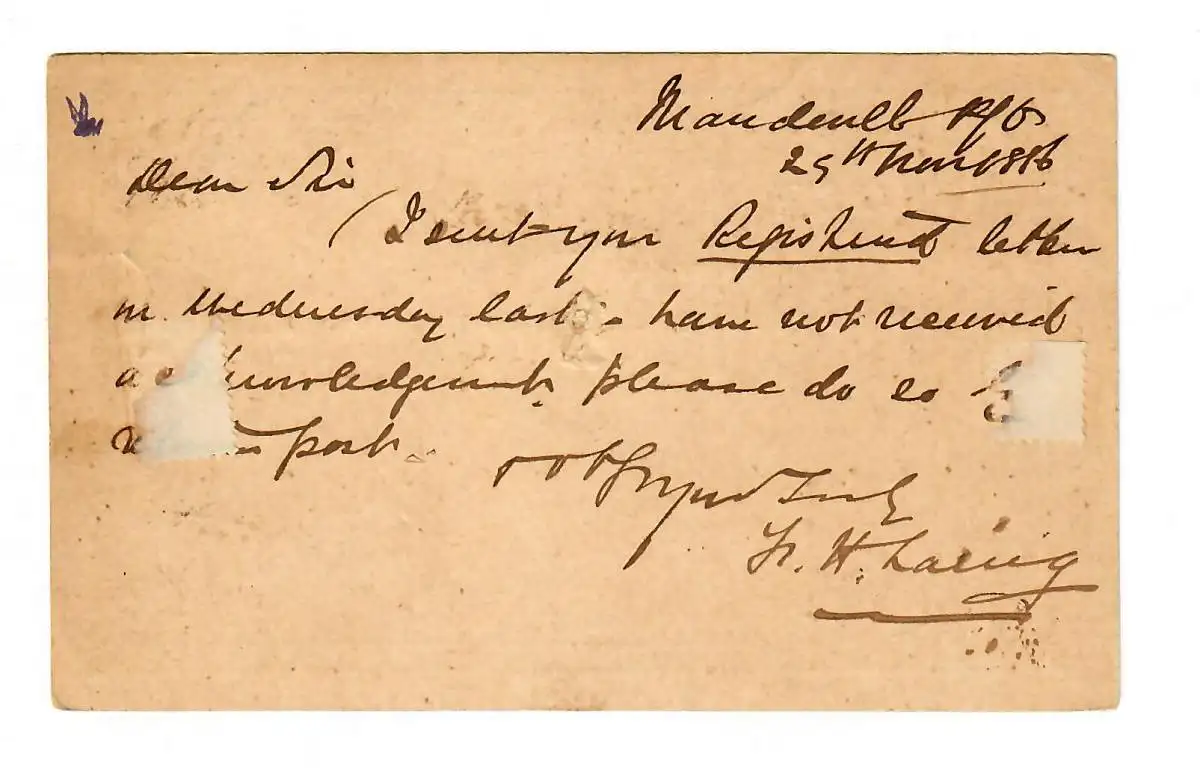 Mandeville P.O
29th Nov 1886
Dear Sir
I sent you Registered letter
on Wednesday last - have not received
acknowledgment please do so
post.
Truly
H. Laring